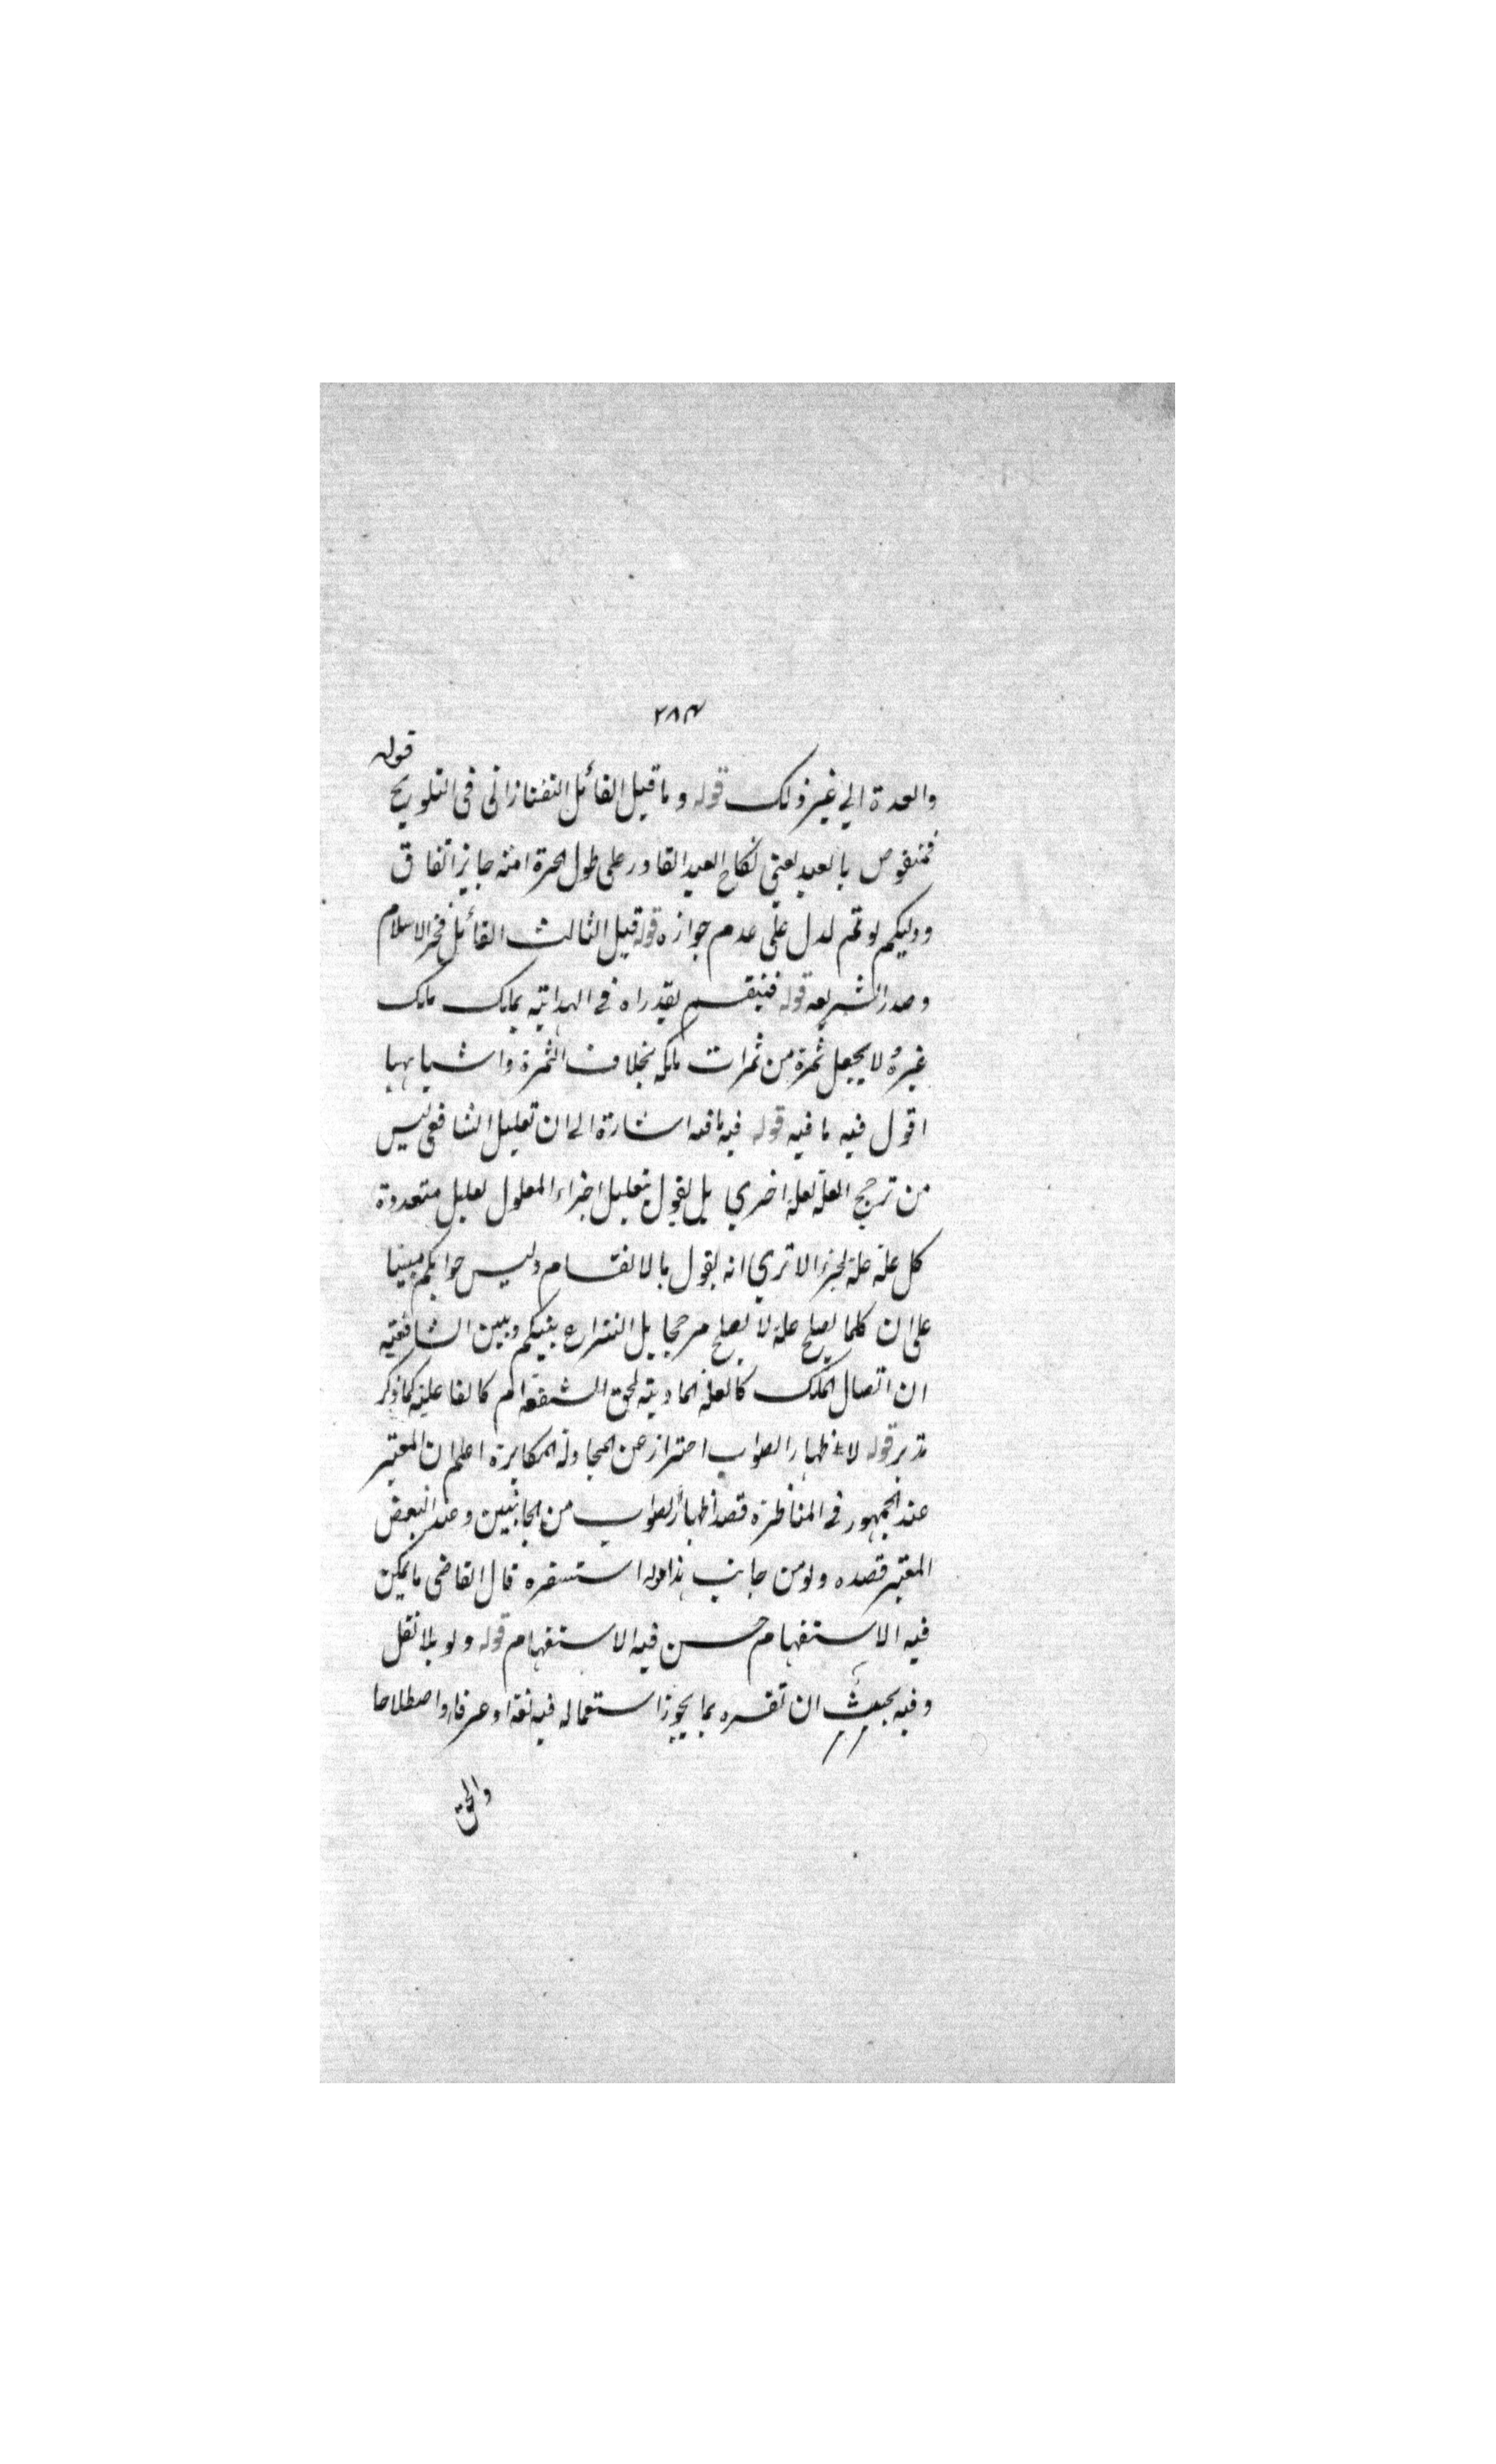 ٢٨٣
قوله
والعدة الى غير ذلك قوله وما قيل القائل التفتازانى فى التلويح
فمنقوض بالعبد يعنى نكاح العبد القادر على طول الحرة امته جايز اتفاق
ودليلكم لو تم لدل على عدم جوازه قوله قيل الثالث القائل فخر الاسلام
وصدر الشريعه قوله فينقسم بقدر اه فى الهداية تملك ملك
غيره لا يجعل ثمرة من ثمرات ملكه بخلاف الثمرة واشباهها
اقول فيه ما فيه قوله فيه ما فيه اشارة الى ان تعليل الشافعى ليس
من ترجيح العلة بعلة اخرى بل يقول بتعليل اجزاء المعلول بعلل متعددة
كل علة علة لجزء الا ترى انه يقول بالانقسام وليس جوابكم مبنيا
على ان كلما يصلح علة لا يصلح مرجحا بل النزاع بينكم وبين الشافعية
ان اتصال الملك كالعلة المادية لحق الشفعة ام كالفاعلية كما ذكر
تدبر قوله لاظهار الصواب احتراز عن المجادلة المكابرة اعلم ان المعتبر
عند الجمهور فى المناظرة قصد اظهار الصواب من الجانبين وعند البعض
المعتبر قصده ولو من جانب هذا قوله استفسره قال القاضى ما يمكن
فيه الاستفهام حسن فيه الاستفهام قوله ولو بلا نقل
وفيه بحث ان تفسره بما يجوز استعماله فيه لغة او عرفا او اصطلاحا
والحق